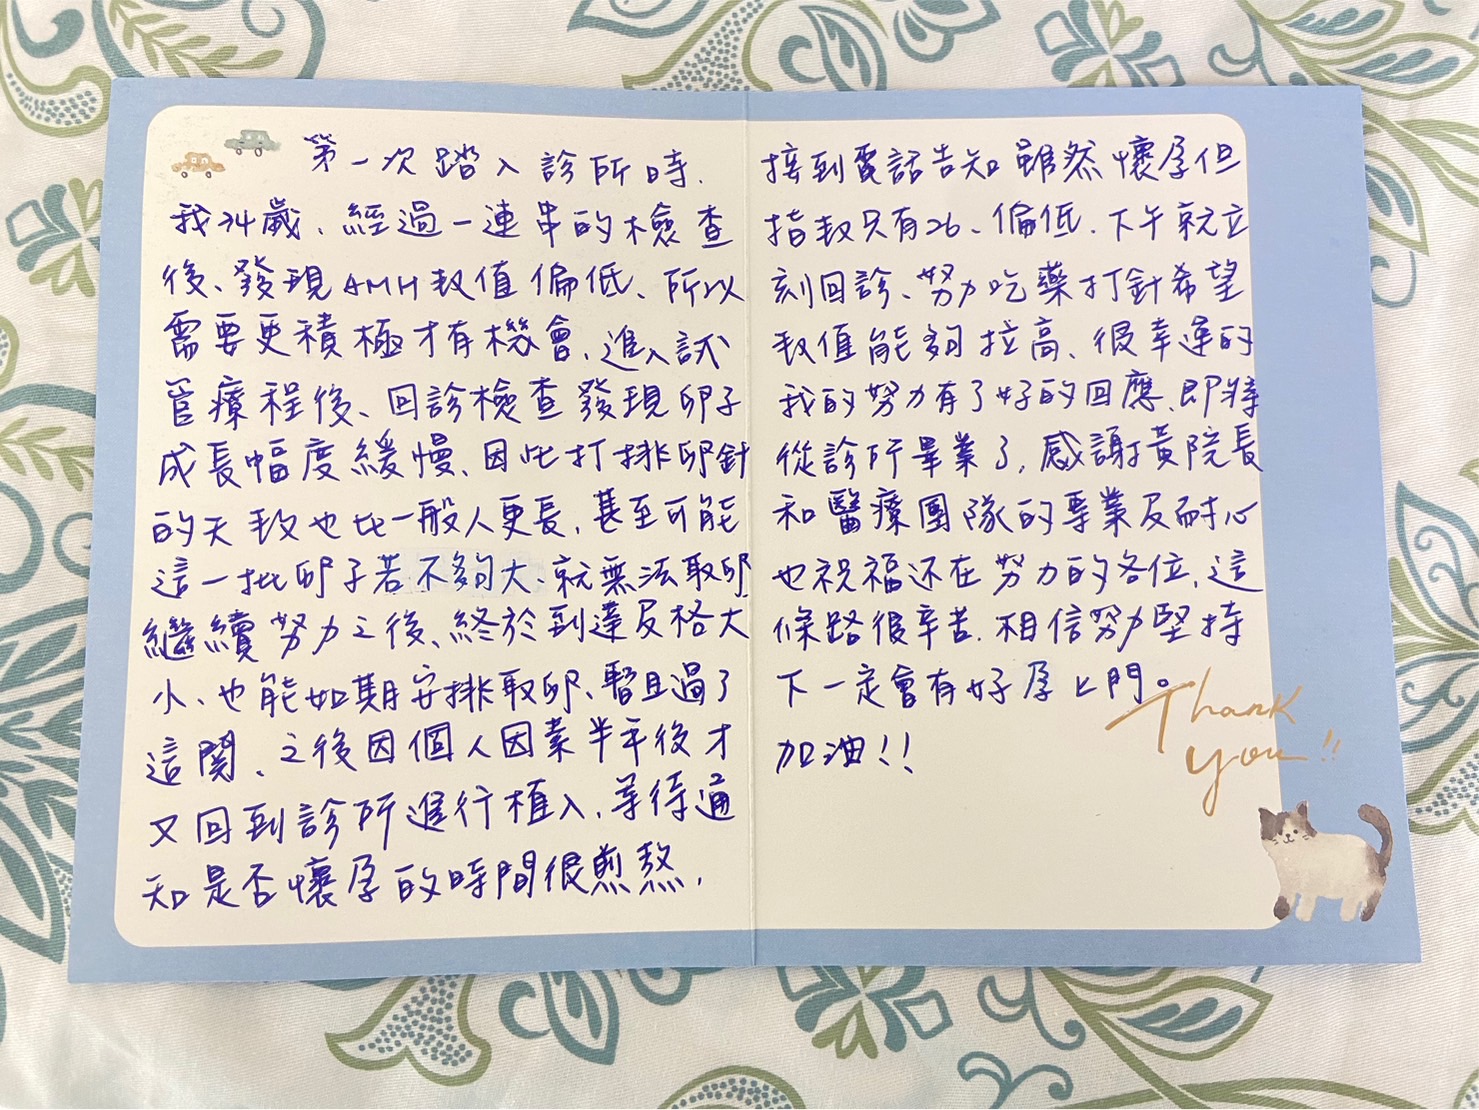 第一次踏入診所時.
我34歲、經過一連串的檢查
後、發現AMH数值偏低、所以
需要更積極才有機會、進入試
管療程後、回診檢查發現卵子
成長幅度緩慢、因此打排卵針
的天数也比一般人更長，甚至可能
這一批卵子若不夠大、就無法取卵
繼續努力之後、終於到達及格大
小、也能如期安排取卵、暫且過了
這関、之後因個人因素半年後才
又回到診所進行植入、等待通
知是否懷孕的時間很煎熬，
接到電話告知雖然懷孕但
指数只有26、偏低、下午就立
刻回診、努力吃藥打針希望
数值能夠拉高、很幸運的
我的努力有了好的回應、即將
從診所畢業了，感謝黃院長
和醫療團隊的專業及耐心
也祝福还在努力的各位，這
條路很辛苦、相信努力堅持
下一定會有好孕上門。
加油!!
Thank
you!!